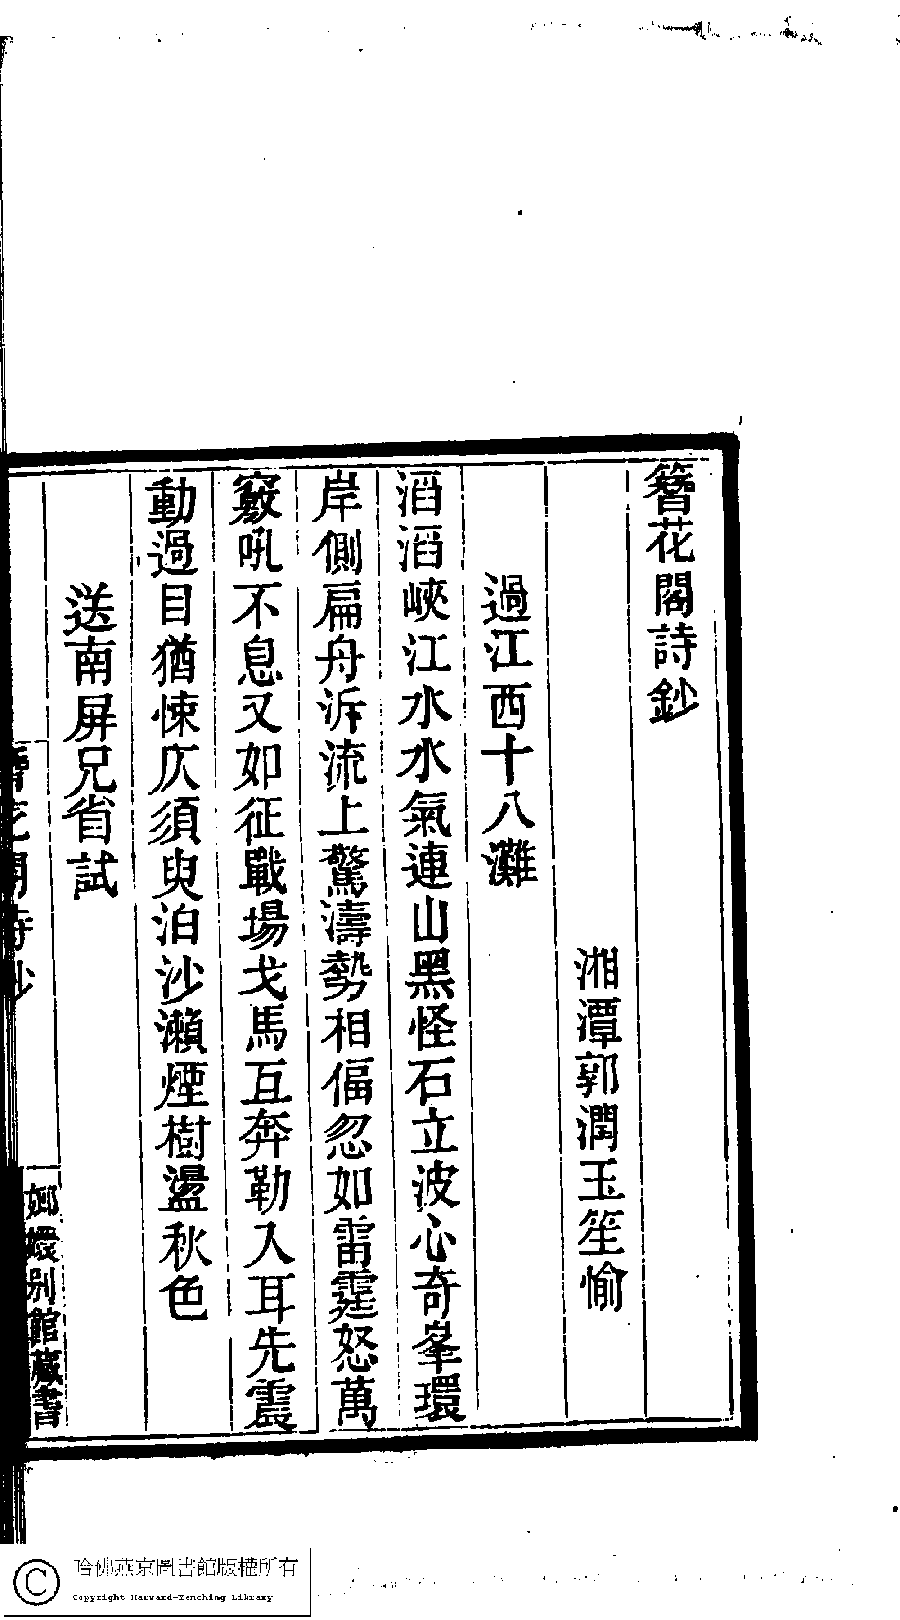 簪花閣詩鈔
湘潭郭潤玉笙愉
過江西十八灘
滔滔峽江水水氣連山黑怪石立波心奇峯環
岸側扁舟泝流上驚濤勢相偪忽如雷霆怒萬
竅吼不息又如征戰場戈馬互奔勒入耳先震
動過目猶悚仄須臾泊沙瀨煙樹盪秋色
送南屏兄省試
簪花閣詩鈔
嫏嬛別館藏書
哈佛燕京圖書館版權所有
Copyright Harvard-Yenching Library